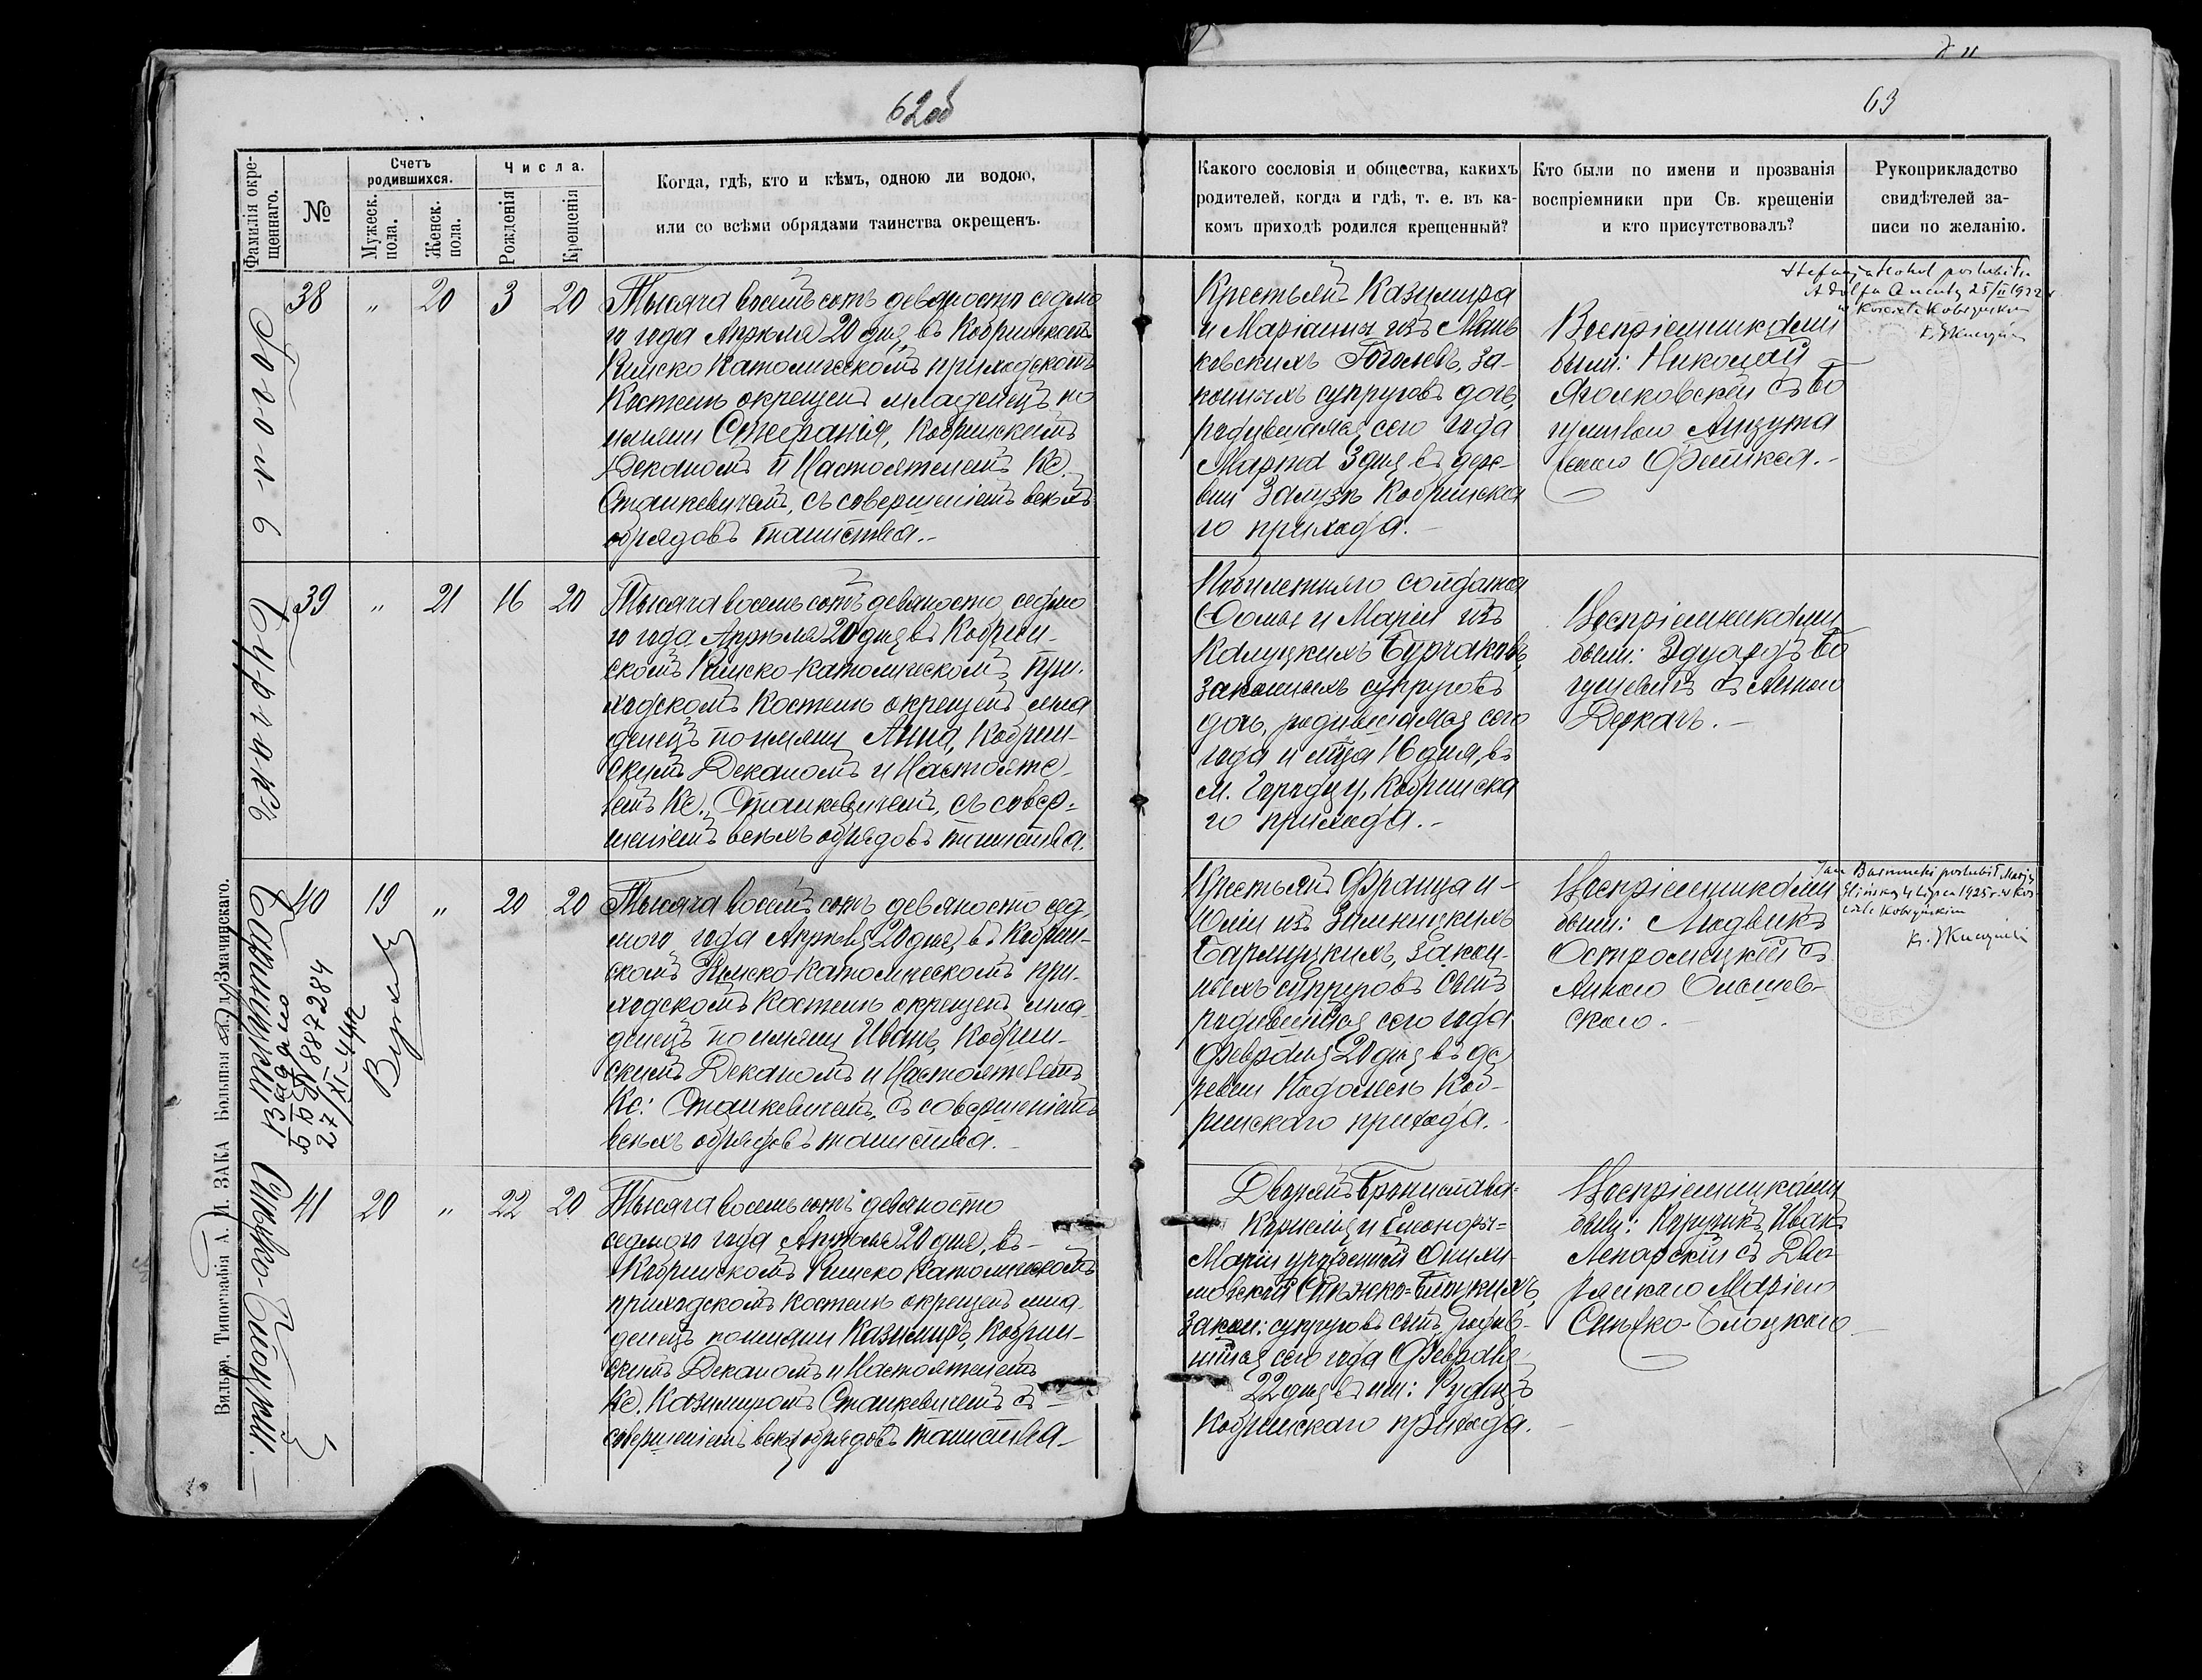 62об
63
Фамилія окре-
щеннаго.
№
Счетъ
родившихся.
Мужеск.
пола.
Женск.
пола.
Числа.
Рожденія
Крещенія
Когда, гдѣ, кто и кѣмъ, одною ли водою,
или со всѣми обрядами таинства окрещенъ.
Какого сословія и общества, какихъ
родителей, когда и гдѣ, т. е. въ ка-
комъ приходѣ родился крещенный?
Кто были по имени и прозванія
воспріемники при Св. крещеніи
и кто присутствовалъ?
Рукоприкладство
свидѣтелей за-
писи по желанію.
Гоголь
38 " 20 3 20
Тысяча восемьсотъ девяносто седмо
го года Апрѣля 20 дня, въ Кобринскомъ
Римско Католическомъ приходскомъ
Костелѣ окрещенъ младенецъ по
имяни Стефанія, Кобринскимъ
Деканомъ и Настоятелемъ Кс.
Станкевичемъ, съ совершеніемъ всѣхъ
обрядовъ таинства.-
Крестьянъ Казимира
и Маріанны изъ Мань
ковскихъ Гоголевъ, за-
конныхъ супруговъ дочь,
родившаяся сего года
Марта 3 дня въ дере-
вни Залузѣ Кобринска
го прихода.-
Воспріемниками
были: Николай
Яголковскій съ
Фенкея.-
Adolfa 25/II 1922 r
w Kościele Kobryńskim
Бурчакъ
39 " 21 16 20
Тысяча восемьсотъ девяносто седмо
го года Апрѣля 20 дня въ Кобрин-
скомъ Римско-Католическомъ при-
ходскомъ Костелѣ окрещенъ мла
денецъ по имяни Анна, Кобрин-
скимъ Деканомъ и Настояте-
лемъ Кс. Станкевичемъ, съ совер-
шеніемъ всѣхъ обрядовъ таинства.
солдата
Фомы и Маріи изъ
Калуцкихъ Бурчаковъ,
законныхъ супруговъ
дочь, родившаяся сего
года и мца 16 дня, въ
м. Городцу, Кобринска
го прихода.-
Воспріемниками
были: Эдуардъ Бо
гушевичъ съ Анною
Деркачъ.-
Бармуцкій
Видано
887284
27/XI-44г
40 19 " 20 20
Тысяча восемьсотъ девяносто сед
мого года Апрѣля 20 дня, въ Кобрин-
скомъ Римско-Католическомъ при-
ходскомъ Костелѣ окрещенъ мла
денецъ по имяни Иванъ, Кобрин-
скимъ Деканомъ и Настоятелемъ
Кс: Станкевичемъ, съ совершеніемъ
всѣхъ обрядовъ таинства.-
Крестьянъ Франца и-
Юліи изъ Зимницкихъ
Бармуцкихъ, закон-
ныхъ супруговъ сынъ
родившійся сего года
Февраля 20 дня въ де
ревни Подолесь Коб-
ринскаго прихода.-
Воспріемниками
были: Людвикъ
Остромецкій съ
Анною
скою.-
Jan Barmucki poślubił Marję
Glińską 4 Lipca 1925 r. w Koś-
ciele Kobryńskim
Синько-Блоцкій.-
41 20 " 22 20
Тысяча восемьсотъ девяносто
седмого года Апрѣля 20 дня, въ-
Кобринскомъ Римско Католическомъ
приходскомъ Костелѣ окрещенъ мла
денецъ по имяни Казимиръ, Кобрин-
скимъ Деканомъ и Настоятелемъ
Кс. Казимиромъ Станкевичемъ съ
совершеніемъ всѣхъ обрядовъ таинства-
Дворянъ Бронислава=
Корнелія и Елеоноры=
Маріи урожденной
закон: супруговъ сынъ, родив-
шійся сего года Февраля
22 дня въ им: Рудецъ
Кобринскаго прихода.-
Воспріемниками
были: Иванъ
Ленарскій съ Дво-
рянкою Маріею
Синько-Блоцкою
Вильна, Типографія А. И. ЗАКА Большая ул. д. Змачинскаго.